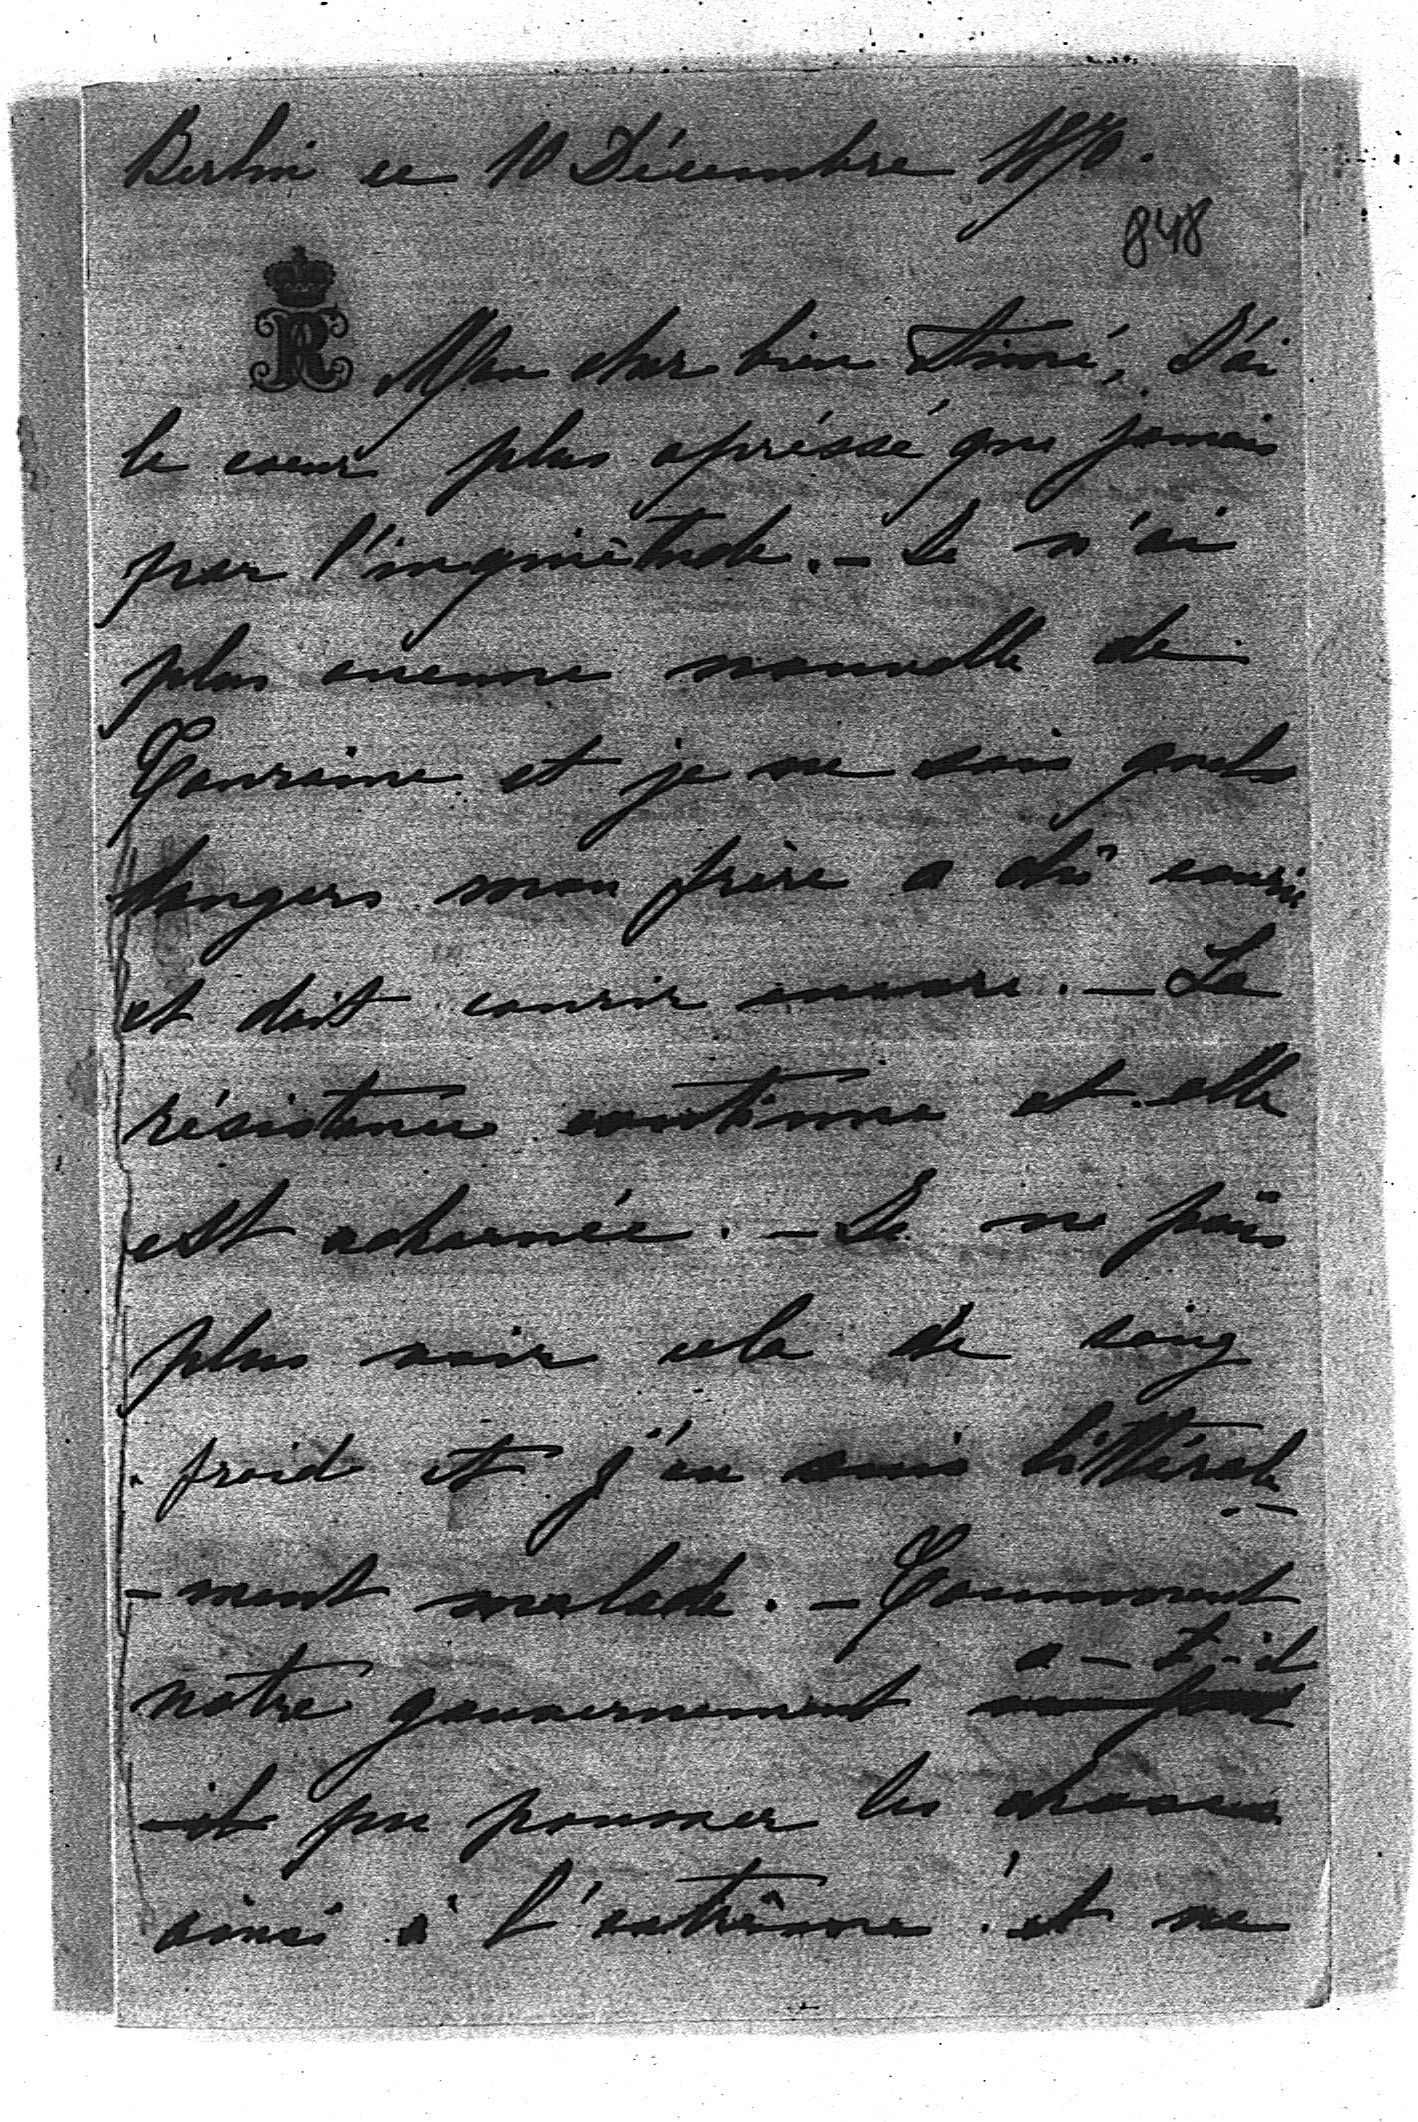 Berlin ce 10 Décembre 1870.
848
Mon cher bien Aimé, J'ai
le coeur plus opréssé que jamais
par l'inquiètude. – Je n'ai
plus aucune nouvelle de
Touraine et je ne sais quels
dangers mon frère a dû courir
et doit courir encore. – La
résistence continue et elle
est acharnée. – Je ne puis
plus voir cela de sang
froid et j'en suis littérale
-ment malade. – Comment
a-t-il
notre gouvernement
-il pu pousser les choses
ainsi à l'extrême et ne